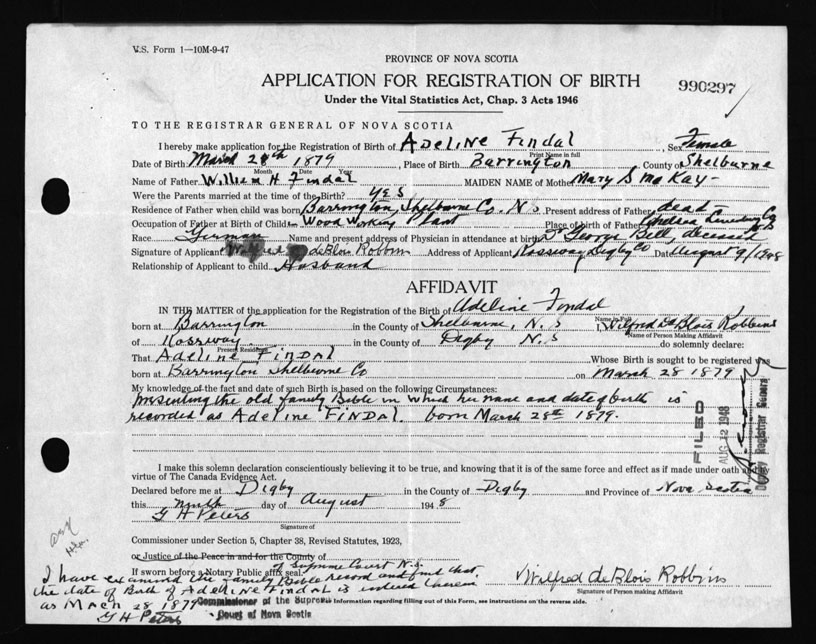 V.S. Form 1—10M-9-47
PROVINCE OF NOVA SCOTIA
APPLICATION FOR REGISTRATION OF BIRTH
990297
Under the Vital Statistics Act, Chap. 3 Acts 1946
TO THE REGISTRAR GENERAL OF NOVA SCOTIA
I hereby make application for the Registration of Birth of Adeline Findal, Sex Female
Print Name in full
Date of Birth March 28th 1879, Place of Birth Barrington County of Shelburne
Month Date Year
Name of Father William H Findal MAIDEN NAME of Mother Mary S McKay
Were the Parents married at the time of the Birth? Yes
Residence of Father when child was born Barrington, Shelburne Co. N.S. Present address of Father dead
Occupation of Father at Birth of Child Wood Working Plant Place of birth of Father
Race German Name and present address of Physician in attendance at birth George Bell, deceased
Signature of Applicant Wilfred deBlois Robbins Address of Applicant Rossway Digby Co Date August 9/1948
Relationship of Applicant to child Husband
AFFIDAVIT
IN THE MATTER of the application for the Registration of the Birth of Adeline Findal
Name in Full
born at Barrington in the County of Shelburne, N.S I, Wilfred De Blois Robbins
Name of Person Making Affidavit
of Rossway in the County of Digby N.S do solemnly declare:
Present Residence
That Adeline FINDAL Whose Birth is sought to be registered was
born at Barrington Shelburne Co on March 28 1879
My knowledge of the fact and date of such Birth is based on the following Circumstances:
presenting the old family Bible in which her name and date of birth is
recorded as Adeline FINDAL. born March 28th 1879.
FILED
AUG 12 1948
Registrar General
I make this solemn declaration conscientiously believing it to be true, and knowing that it is of the same force and effect as if made under oath and by
virtue of The Canada Evidence Act.
Declared before me at Digby in the County of Digby and Province of Nova Scotia
this ninth day of August 1948
G H Peters
Signature of
Commissioner under Section 5, Chapter 38, Revised Statutes, 1923,
or Justice of the Peace in and for the County of
of Supreme Court N.S.
If sworn before a Notary Public affix seal.
I have examined the family Bible record and find that
the date of Birth of Adeline FINDAL is entered therein
as March 28 1879
G H Peters
Commissioner of the Supreme
Court of Nova Scotia
Information regarding filling out of this Form, see instructions on the reverse side.
Wilfred deBlois Robbins
Signature of Person making Affidavit